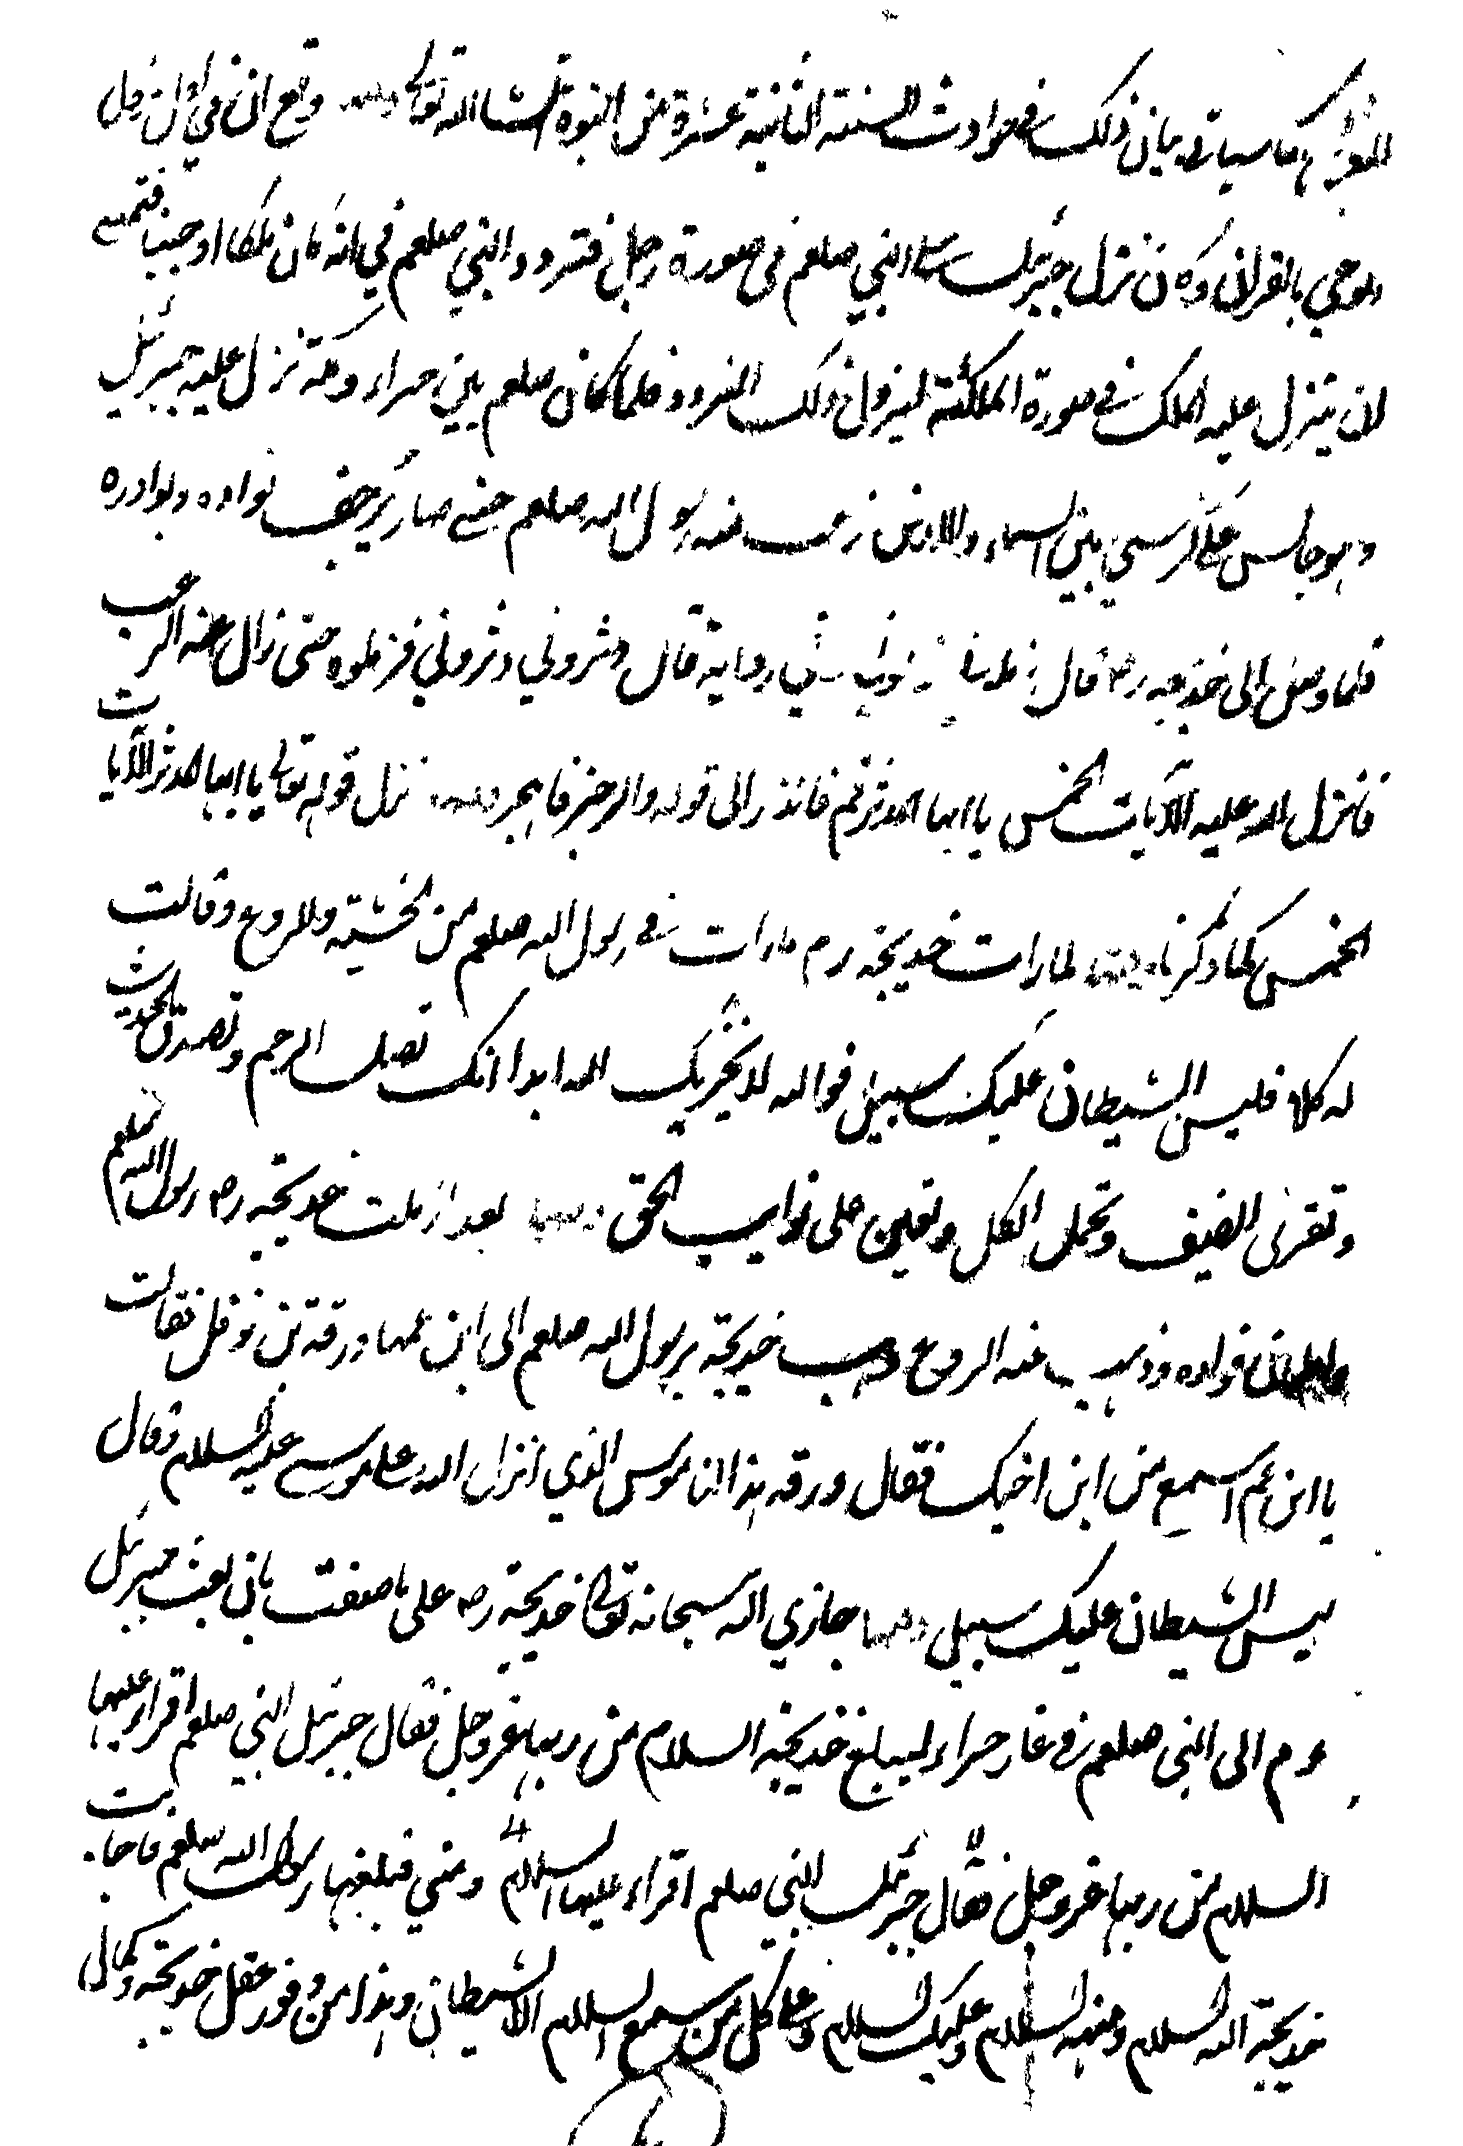 كما سياتي بيان ذلك في حوادث السنة الثانية عشرة من النبوة انشا الله تعالى وقع ان في اول نزول
الوحي بالقران وكان نزل جبرئيل على النبي صلعم في صورة رجل فتردد النبي صلعم في انه كان ملكا او جنيا فتمنى
لان ينزل عليه الملك في صورة الملكية ليزول ذلك التردد فلما كان صلعم بين حراء ومكة نزل عليه جبرئيل
وهو جالس على كرسي بين السماء والارض فرعب منه رسول الله صلعم حتى صار يرجف فواده وبوادره
فلما وصل الى خديجه رضـ قال زملونا في رواية قال دثروني دثروني فزملوه حتى زال عنه الرعب
فانزل الله عليه الآيات الخمس يا ايها المدثر قم فانذر الى قوله والرجز فاهجر نزل قوله تعالى يا ايها المدثر الآيات
الخمس كما ذكرنا لما رات خديجة رضـ ما رات في رسول الله صلعم من الخشية والروع وقالت
له كلا فليس الشيطان عليك سبيل فوالله لا يخزيك الله ابدا انك تصل الرحم وتصدق الحديث
وتقرى الضيف وتحمل الكل وتعين على نوايب الحق بعد ازملت خديجه رضـ رسول الله صلعم
واطمان فواده وذهب عنه الروع ذهب خديجة برسول الله صلعم الى ابن عمها ورقة بن نوفل فقالت
يا ابن عم اسمع من ابن اخيك فقال ورقه هذا الناموس الذي انزل الله على موسى عليه السلام وقال
ليس الشيطان عليك سبيل جازي الله سبحانه تعالى خديجة رضـ على ما صنعت بان بعث جبرئيل
عـم الى النبي صلعم في غار حراء ليبلغ خديجة السلام من ربها عز وجل فقال جبرئيل النبي صلعم اقراء عليها
السلام من ربها عز وجل فقال جبرئيل للنبي صلعم اقراء عليها السلام ومني فبلغها رسول الله صلعم فاجابت
خديجة الله السلام ومنه السلام وعليك السلام وعلى كل من سمع السلام الا الشيطان وهذا من وفور عقل خديجة وكمال